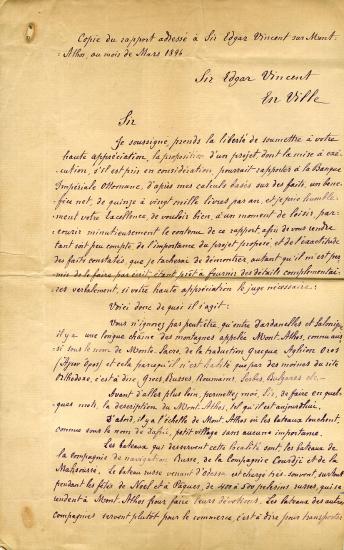 Copie du rapport adressé à Sir Edgar Vincent sur Mont-
Athos, au mois de Mars 1896
Sir Edgar Vincent
En Ville
Sir
Je soussigné, prends la liberté de soumettre à votre
haute appréciation, la proposition d'un projet dont la mise à exé-
cution, s'il est pris en considération, pourrait rapporter à la Banque
Impériale Ottomane, d'après mes calculs basés sur des faits, un béné-
fice net, de quinze à vingt mille livres par an, et je prie humble-
ment votre Excellence de vouloir bien, à un moment de loisir par-
courir minutieusement le contenu de ce rapport, afin de vous rendre
tant soit peu compte de l'importance du projet proposé, et de l'exactitude
des faits constatés que je tacherai de démontrer, autant qu'il m'est per-
mis de le faire par écrit, étant prêt à fournir des détails complémentai-
res verbalement, si votre haute appréciation le juge nécessaire:
Voici donc de quoi il s'agit:
Vous n'ignorez pas peut être, qu'entre Dardanelles et Salonique,
il y a une longue chaîne des montagnes appelée Mont-Athos, connu aus-
si sous le nom de Monte-Sacro, de la traduction Grecque Aghion Oros
(Άγιον Όρος) et cela parcequ'il n'est habité que par des moines du rite
Orthodoxe, c'est à dire, Grecs, Russes, Roumains, Serbes, Bulgares etc.-
Avant d'aller plus loin, permettez moi, Sir, de faire en quel-
ques mots, la description du Mont-Athos, tel qu'il est aujourd'hui.
D'abord, il y a l'échelle de Mont-Athos où les bateaux touchent,
connue sous le nom de Dafni, petit village sans aucune importance.
Les bateaux qui desservent cette localité sont, les bateaux de
la Compagnie de navigation Russe, de la Compagnie Courdji et de la
Mahsousse. Le bateau russe venant d'Odessa est chargé très souvent, surtout
pendant les fêtes de Noël et à Pâques, de 400 à 500 pèlerins russes, qui se
rendent à Mont-Athos pour faire leurs dévotions. Les bateaux des autres
Compagnies servent plutôt pour le commerce, c'est à dire pour transporter